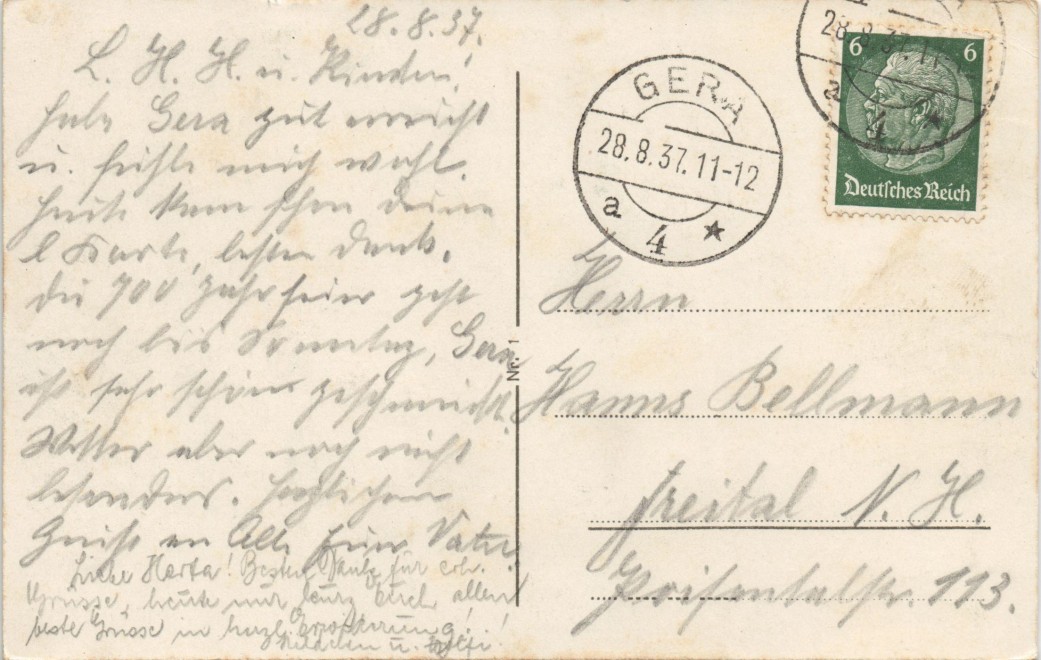 28.8.37.
L. H. H. u. Kinder!
Habe Gera gut erreicht
u. fühle mich wohl.
Heute kam schon deine
l Karte, besten Dank.
Die 700 Jahrfeier geht
noch bis Sonntag, Gera
ist sehr schön geschmückt.
Wetter aber noch nicht
besonders. Herzlichen
Gruß an Alle Euer Vater.
Liebe Herta! Besten Dank für erh.
Grüsse, heute nur kurz Euch allen
beste Grüsse in herzl.
u.
GERA
28.8.37.11-12
a 4
28.8.37.11
a 4
6 6
Deutsches Reich
Nr. 1
Herrn
Hanns Bellmann
Freital N. H.
113.